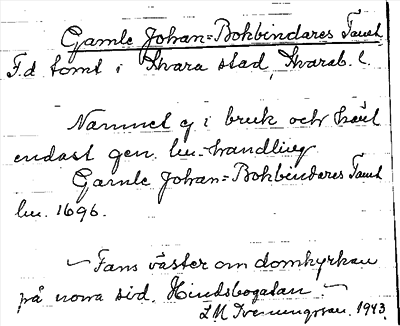 Gamle Johan=Bokbindares Tomt
F.d tomt i Skara stad, Skarab. l.
Namnet ej i bruk och känt
endast gen. lm-handling
Gamle Johan=Bokbinderes Tomt
lm. 1696.
— Fans väster om domkyrkan
på norra sid. Hindsbogatan. —
1943.